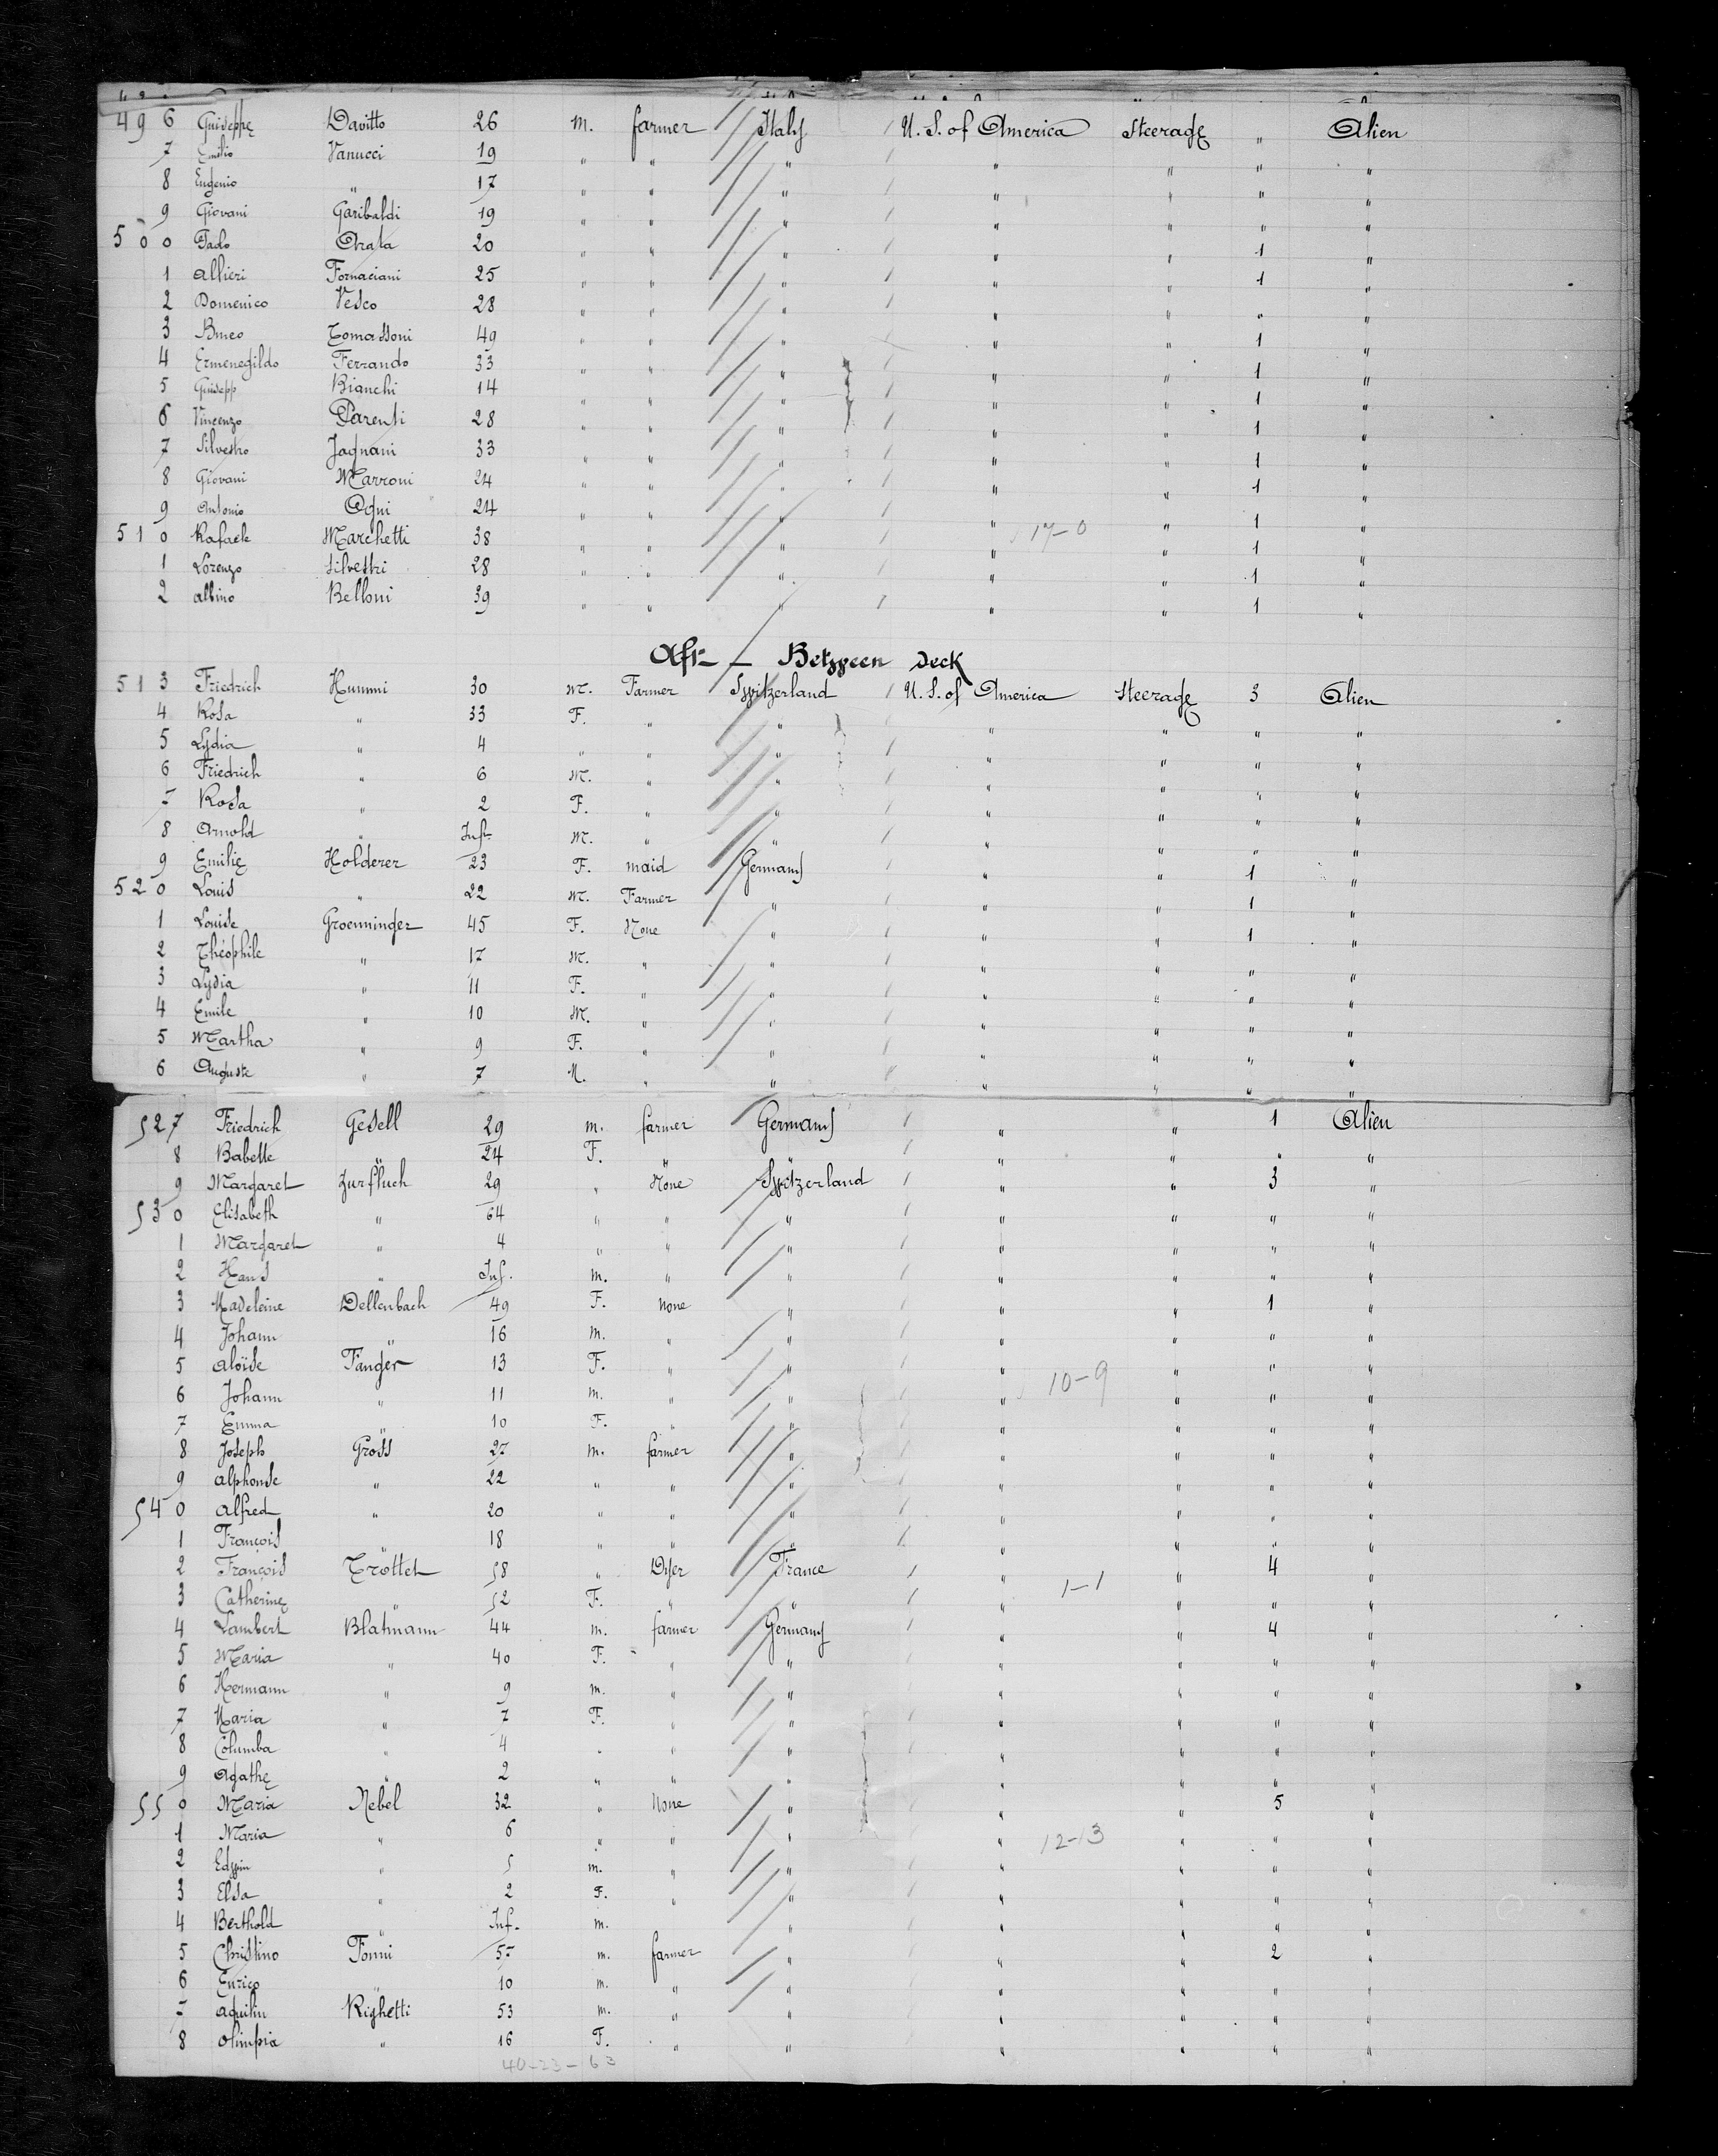 496 Guiseppe Davitto 26 m. farmer Italy U. S. of America Steerage " Alien
7 Emilio Vanucci 19 " " " " " " "
8 Eugenio " 17 " " " " " " "
9 Giovani Garibaldi 19 " " " " " " "
500 Paolo Orata 20 " " " " " 1 "
1 Allieri Fornaciani 25 " " " " " 1 "
2 Domenico Vesco 28 " " " " " " "
3 Bmeo Tomassoni 49 " " " " " 1 "
4 Ermenegildo Ferrando 33 " " " " " 1 "
5 Guisepp Bianchi 14 " " " " " 1 "
6 Vincenzo Parenti 28 " " " " " 1 "
7 Silvestro Jagnani 33 " " " " " 1 "
8 Giovani Marroni 24 " " " " " 1 "
9 Antonio Ogni 24 " " " " " 1 "
510 Rafaele Marchetti 38 " " " " 17-0 " 1 "
1 Lorenzo Silvestri 28 " " " " " 1 "
2 Albino Belloni 39 " " " " " 1 "
Aft - Between deck
513 Friedrich Hummi 30 M. Farmer Switzerland U. S. of America Steerage 3 Alien
4 Rosa " 33 F. " " " " " "
5 Lydia " 4 " " " " " " "
6 Friedrich " 6 M. " " " " " "
7 Rosa " 2 F. " " " " " "
8 Arnold " Inft. M. " " " " " "
9 Emilie Holderer 23 F. maid Germany " " 1 "
520 Louis " 22 M. Farmer " " " 1 "
1 Louise Groenninger 45 F. None " " " 1 "
2 Théophile " 17 M. " " " " " "
3 Lydia " 11 F. " " " " " "
4 Emile " 10 M. " " " " " "
5 Martha " 9 F. " " " " " "
6 Auguste " 7 M. " " " " " "
527 Friedrich Gesell 29 m. farmer Germany " " 1 Alien
8 Babette " 24 F. " " " " " "
9 Margaret Zurfluch 29 " None Switzerland " " 3 "
530 Elisabeth " 64 " " " " " " "
1 Margaret " 4 " " " " " " "
2 Hans " Inf. m. " " " " " "
3 Madeleine Dellenbach 49 F. None " " " 1 "
4 Johann " 16 m. " " " " " "
5 Aloïse Fanger 13 F. " " " " " "
6 Johann " 11 m. " " " 10-9 " " "
7 Emma " 10 F. " " " " " "
8 Joseph Gross 27 m. farmer " " " " "
9 Alphonse " 22 " " " " " " "
540 Alfred " 20 " " " " " " "
1 François " 18 " " " " " " "
2 François Trottet 58 " Dyer France " " 4 "
3 Catherine " 52 F. " " " 1-1 " " "
4 Lambert Blatmann 44 m. farmer Germany " " 4 "
5 Maria " 40 F. " " " " " "
6 Hermann " 9 m. " " " " " "
7 Maria " 7 F. " " " " " "
8 Columba " 4 " " " " " " "
9 Agathe " 2 " " " " " " "
550 Maria Nebel 32 " None " " " 5 "
1 Maria " 6 " " " " 12-13 " " "
2 Edwin " 5 m. " " " " " "
3 Elsa " 2 F. " " " " " "
4 Berthold " Inf. m. " " " " "
5 Christino Fonni 55 m. farmer " " " 2 "
6 Enrico " 10 m. " " " " " "
7 Aquilin Righetti 53 m. " " " " " "
8 Olimpia " 16 F. " " " " " "
40-23-63